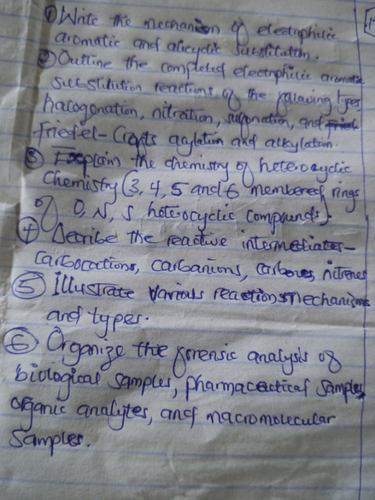 ① Write the mechanism of electrophilic
aromatic and alicyclic substitution.
② Outline the completed electrophilic aromatic
substitution reactions of the following types
halogenation, nitration, sulfonation, and
Friedel-Crafts acylation and alkylation.
③ Explain the chemistry of heterocyclic
Chemistry (3, 4, 5 and 6 membered rings
of O, N, S, heterocyclic compounds).
④ Describe the reactive intermediates-
carbocations, carbanions, carbenes, nitrenes
⑤ Illustrate various reactions mechanisms
and types.
⑥ Organize the forensic analysis of
biological samples, pharmaceutical samples,
organic analytes, and macromolecular
samples.